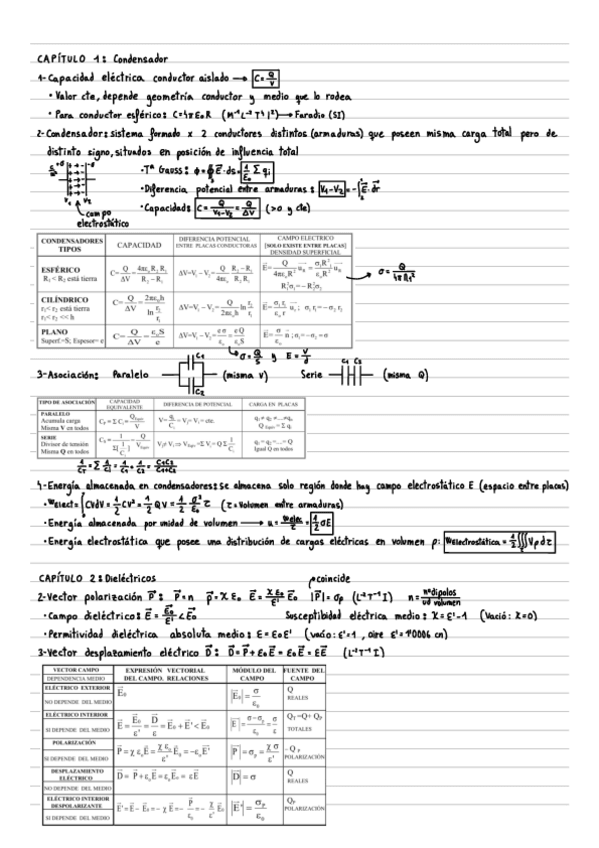 CAPÍTULO 1: Condensador
1-Capacidad eléctrica conductor aislado → C = Q/V
• Valor cte, depende geometría conductor y medio que lo rodea
• Para conductor esférico: C=4πε₀R (M⁻¹L⁻²T⁴I²) → Faradio (SI)
2-Condensador: sistema formado x 2 conductores distintos (armaduras) que poseen misma carga total pero de
distinto signo, situados en posición de influencia total
• Tª Gauss: ϕ = ∮ E⃗·ds = 1/ε₀ Σ qᵢ
• Diferencia potencial entre armaduras: V₁-V₂ = -∫ E⃗·dr⃗
• Capacidad: C = Q/(V₁-V₂) = Q/ΔV (>0 y cte)
V₁ V₂
campo
electrostático
CONDENSADORES TIPOS CAPACIDAD DIFERENCIA POTENCIAL ENTRE PLACAS CONDUCTORAS CAMPO ELECTRICO [SOLO EXISTE ENTRE PLACAS] DENSIDAD SUPERFICIAL
ESFÉRICO
R₁< R₂ está tierra
C= Q/ΔV = 4πε₀R₂R₁/(R₂−R₁) ΔV=V₁−V₂= Q/4πε₀ (R₂−R₁)/(R₂R₁)
R₁²σ₁=−R₂²σ₂
σ = Q/4πR₁²
CILÍNDRICO
r₁< r₂ está tierra
r₁< r₂ << h
C= Q/ΔV = 2πε₀h/ln(r₂/r₁) ΔV=V₁−V₂= Q/2πε₀h ln r₂/r₁ E⃗= σ₁r₁/ε₀r u⃗ᵣ ; σ₁r₁=−σ₂r₂
PLANO
Superf.=S; Espesor= e
C= Q/ΔV = ε₀S/e ΔV=V₁−V₂= eσ/ε₀ = eQ/ε₀S E⃗= σ/ε₀ n⃗ ; σ₁=−σ₂=σ
σ = Q/S y E = V/d
3-Asociación: Paralelo C₁ C₂ (misma V) Serie C₁ C₂ (misma Q)
TIPO DE ASOCIACIÓN CAPACIDAD EQUIVALENTE DIFERENCIA DE POTENCIAL CARGA EN PLACAS
PARALELO
Acumula carga
Misma V en todos
SERIE
Divisor de tensión
Misma Q en todos
q₁ = q₂ =...= Q
Igual Q en todos
1/C_T = Σ 1/Cᵢ = 1/C₁ + 1/C₂ = (C₁+C₂)/(C₁C₂)
4-Energía almacenada en condensadores: se almacena solo región donde hay campo electrostático E (espacio entre placas)
• W_Elect = ∫CVdV = 1/2 CV² = 1/2 QV = 1/2 σ²/ε₀ τ (τ = Volumen entre armaduras)
• Energía almacenada por unidad de volumen → u = W_elec/τ = 1/2 σE
• Energía electrostática que posee una distribución de cargas eléctricas en volumen ρ: W_Electrostática = 1/2 ∭ Vρdτ
CAPÍTULO 2: Dieléctricos
coincide
2-Vector polarización P⃗: P⃗=n p⃗=χ ε₀ E⃗ = χε₀/ε' E⃗₀ |P⃗| = σₚ (L⁻²T¹I) n = nºdipolos/ud volumen
• Campo dieléctrico: E⃗ = E⃗₀/ε' < E⃗₀ Susceptibidad eléctrica medio: χ = ε'-1 (Vació: χ=0)
• Permitividad dieléctrica absoluta medio: ε = ε₀ε' (vacío: ε'=1, aire ε'=1'0006 cn)
3-Vector desplazamiento eléctrico D⃗: D⃗ = P⃗ + ε₀E⃗ = ε₀E⃗₀ = εE⃗ (L⁻²T¹I)
VECTOR CAMPO
DEPENDENCIA MEDIO
EXPRESIÓN VECTORIAL DEL CAMPO. RELACIONES MÓDULO DEL CAMPO FUENTE DEL CAMPO
ELÉCTRICO EXTERIOR
NO DEPENDE DEL MEDIO
E⃗₀ |E⃗₀| = σ/ε₀ Q REALES
ELÉCTRICO INTERIOR
SI DEPENDE DEL MEDIO
E⃗ = E⃗₀/ε' = D⃗/ε = E⃗₀ + E⃗' < E⃗₀ |E⃗| = (σ−σₚ)/ε₀ = σ/ε Q_T=Q+ Q_P TOTALES
POLARIZACIÓN
SI DEPENDE DEL MEDIO
P⃗ = χ ε₀ E⃗ = χε₀/ε' E⃗₀ = −ε₀E⃗' |P⃗| = σₚ = χσ/ε' – Q_P POLARIZACIÓN
DESPLAZAMIENTO ELÉCTRICO
NO DEPENDE DEL MEDIO
D⃗ = P⃗ + ε₀E⃗ = ε₀E⃗₀ = εE⃗ |D⃗| = σ Q REALES
ELÉCTRICO INTERIOR DESPOLARIZANTE
SI DEPENDE DEL MEDIO
E⃗' = E⃗ − E⃗₀ = −χE⃗ = −P⃗/ε₀ = −χ/ε' E⃗₀ |E⃗'| = σₚ/ε₀ Q_P POLARIZACIÓN